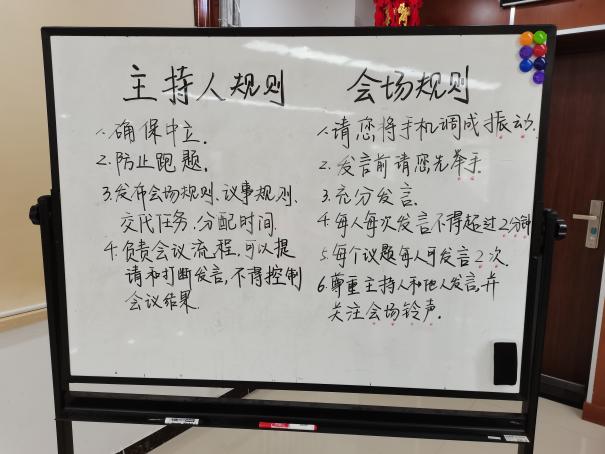 主持人规则
1.确保中立.
2.防止跑题.
3.发布会场规则、议事规则、
交代任务.分配时间.
4.负责会议流程,可以提
请和打断发言,不得控制
会议结果.
会场规则
1.请您将手机调成振动.
2.发言前请您先举手.
3.充分发言.
4.每人每次发言不得超过2分钟
5.每个议题每人可发言2次.
6.尊重主持人和他人发言,并
关注会场铃声.